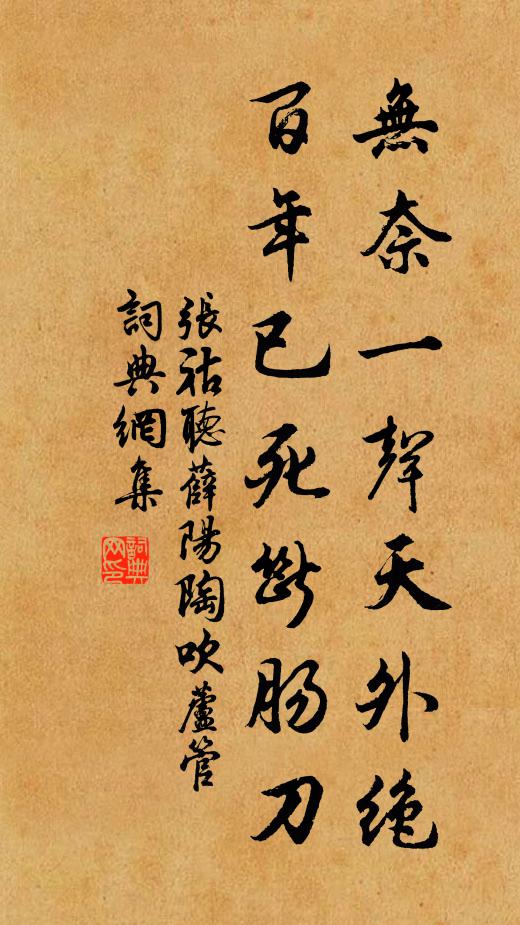 無奈一聲天外絕
百年已死斷腸刀
張祜聽薛陽陶吹蘆管
詞典網集
詞典
网印